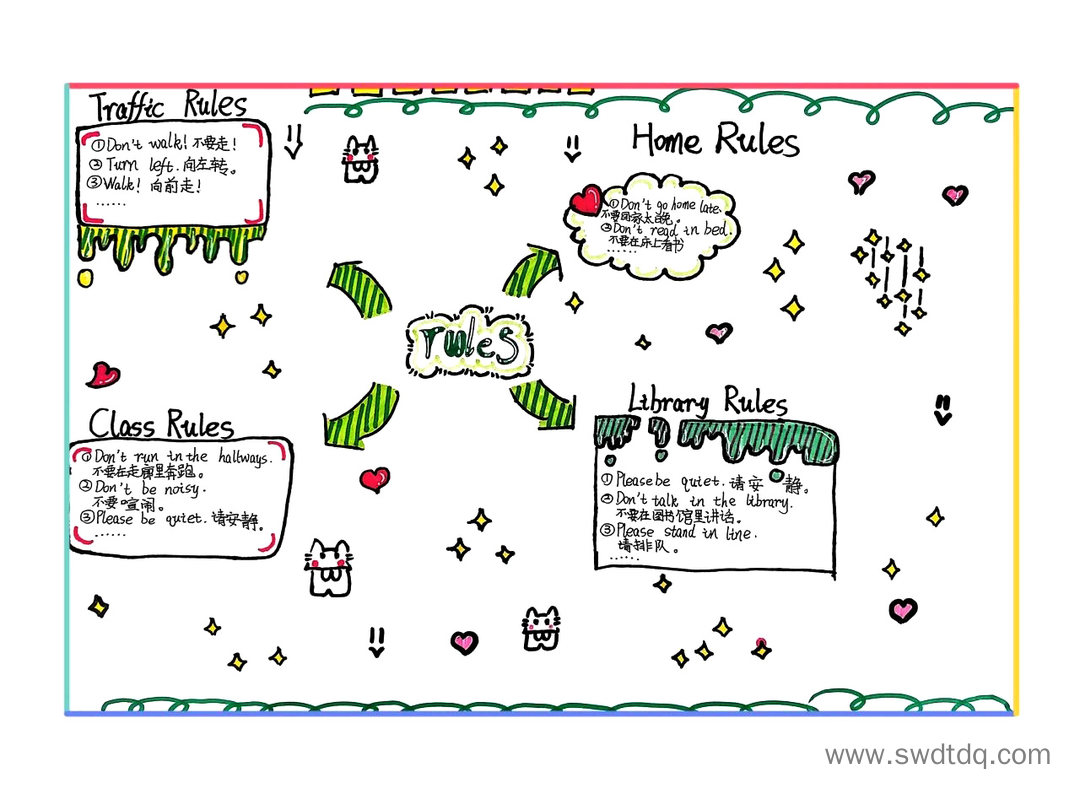 Traffic Rules
①Don't walk! 不要走!
②Turn left. 向左转。
③Walk! 向前走!
......
Home Rules
①Don't go home late.
不要回家太晚。
②Don't read in bed.
不要在床上看书
......
rules
Class Rules
①Don't run in the hallways.
不要在走廊里奔跑。
②Don't be noisy.
不要喧闹。
③Please be quiet. 请安静。
......
Library Rules
①Please be quiet. 请安静。
②Don't talk in the library.
不要在图书馆里讲话。
③Please stand in line.
请排队。
......
www.swdtdq.com